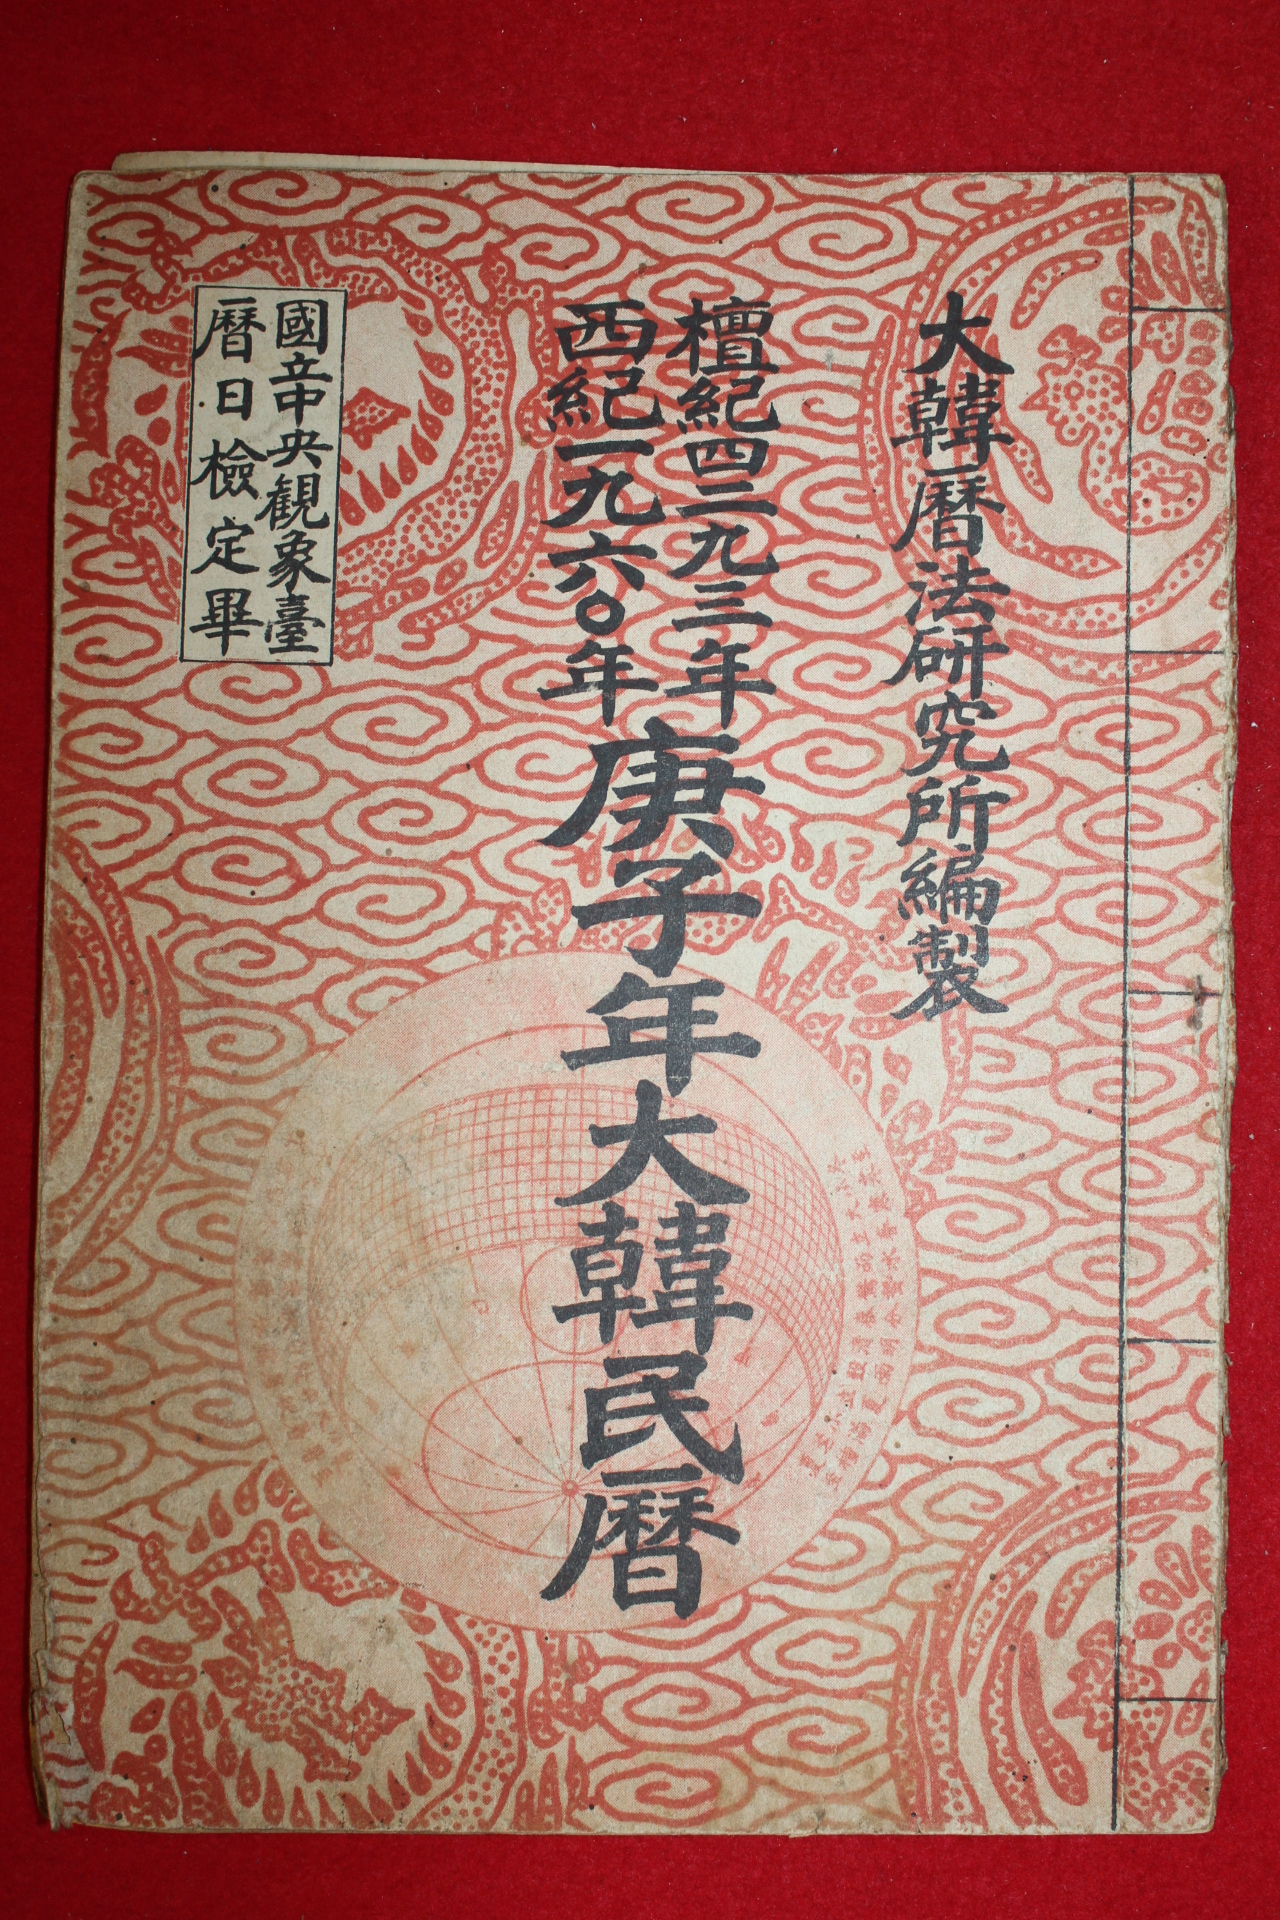 大韓曆法研究所編製
檀紀四二九三年
西紀一九六〇年
庚子年大韓民曆
國立中央観象臺
曆日檢定畢